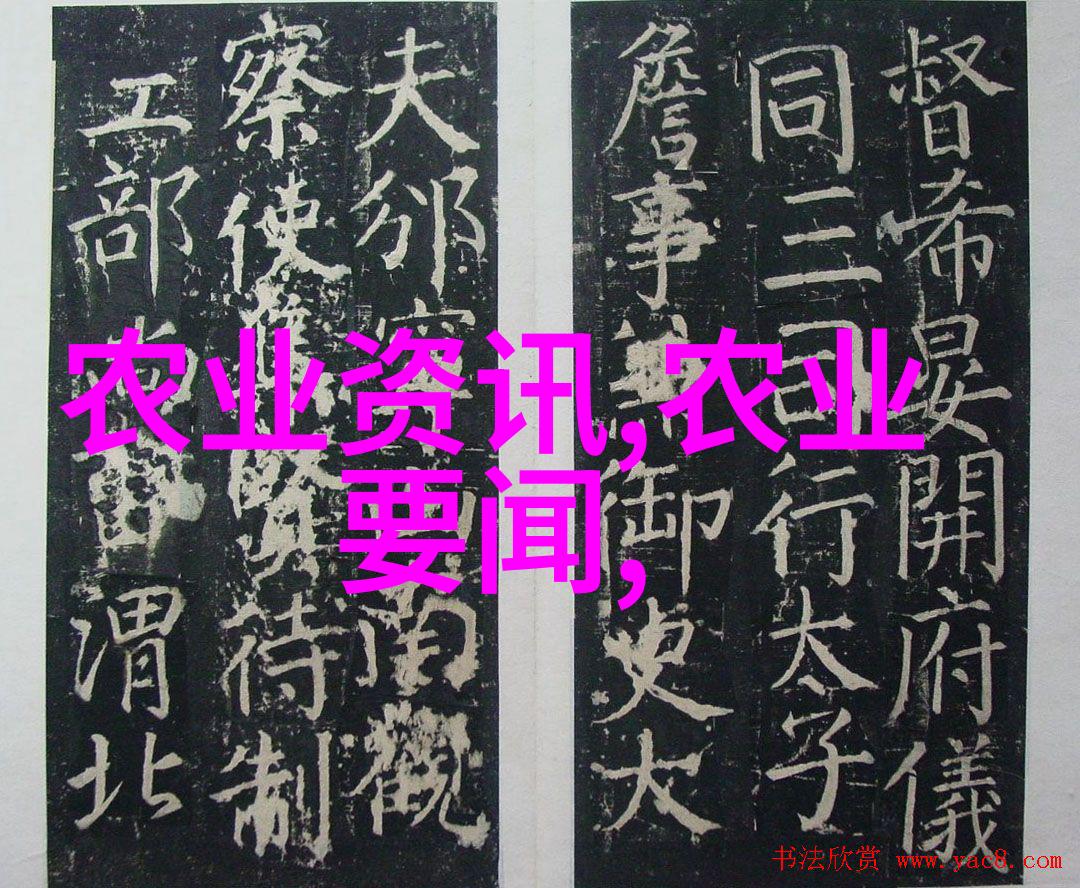 督希晏開府儀
同三司行太子
詹事兼御史大
夫邠寧
觀
察使
待制
工部尚書渭北
农业资讯,农业
要闻,
书法欣赏 www.yac8.com